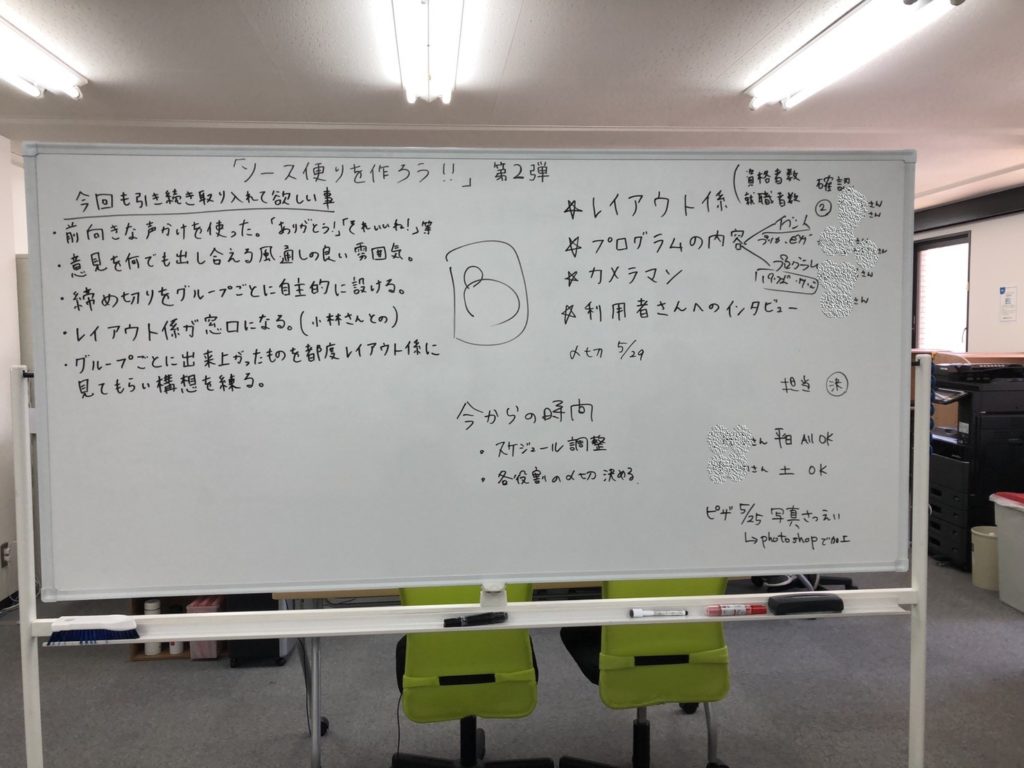 「ソース便りを作ろう!!」 第2弾
今回も引き続き取り入れて欲しい事
・前向きな声かけを使った。「ありがとう!」「それいいね!」等
・意見を何でも出し合える風通しの良い雰囲気。
・締め切りをグループごとに自主的に設ける。
・レイアウト係が窓口になる。(小林さんとの)
・グループごとに出来上がったものを都度レイアウト係に
見てもらい構想を練る。
B
☆レイアウト係
資格者数
就職者数
確認
②
さん
さん
☆プログラムの内容
イベント
プログラム
さん
さん
☆カメラマン
さん
☆利用者さんへのインタビュー
〆切 5/29
担当
今からの時間
・スケジュール調整
・各役割の〆切決める。
さん 平日 All OK
さん 土 OK
ピザ 5/25 写真さつえい
↳photoshopで加工